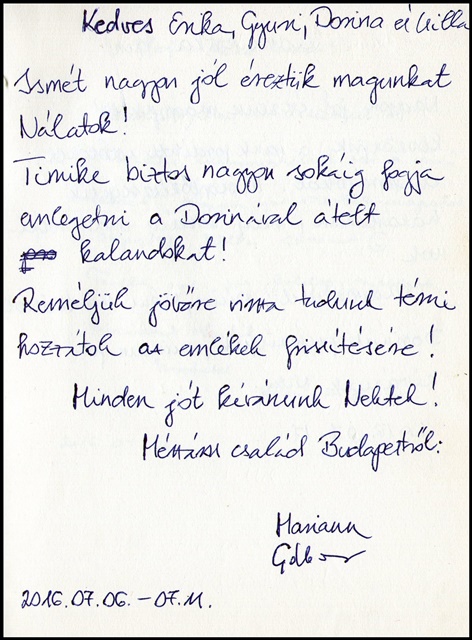 Kedves Erika, Gyuri, Dorina és Attila
Ismét nagyon jól éreztük magunkat
Nálatok!
Timike biztos nagyon sokáig fogja
emlegetni a Dorinával átélt
kalandokat!
Reméljük jövőre vissza tudunk térni
hozzátok az emlékek frissítésére!
Minden jót kívánunk Nektek!
család Budapestről:
Mariann
Gábor
2016.07.06. – 07.11.